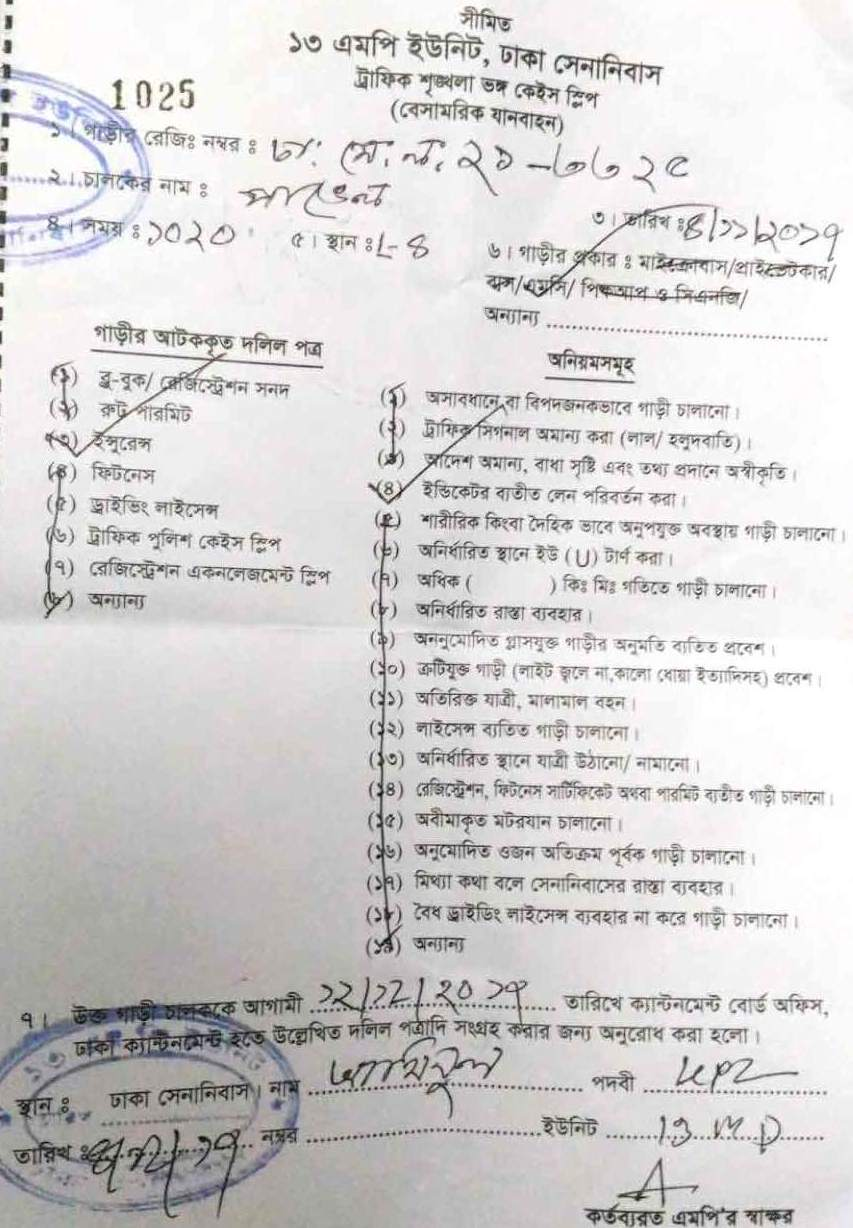 সীমিত
১৩ এমপি ইউনিট, ঢাকা সেনানিবাস
ট্রাফিক শৃঙ্খলা ভঙ্গ কেইস স্লিপ
(বেসামরিক যানবাহন)
1025
১। গাড়ীর রেজিঃ নম্বর ঃ
২। চালকের নাম ঃ
৩। তারিখ ঃ
৪। সময় ঃ ১০২০
৫। স্থান ঃ L-8
৬। গাড়ীর প্রকার ঃ মাইক্রোবাস/প্রাইভেটকার/
বাস/এমনি/ পিকআপ ও সিএনজি/
অন্যান্য
গাড়ীর আটককৃত দলিল পত্র
(১) ব্লু-বুক/ রেজিস্ট্রেশন সনদ
(২) রুট পারমিট
(৩) ইন্সুরেন্স
(৪) ফিটনেস
(৫) ড্রাইভিং লাইসেন্স
(৬) ট্রাফিক পুলিশ কেইস স্লিপ
(৭) রেজিস্ট্রেশন একনলেজমেন্ট স্লিপ
(৮) অন্যান্য
অনিয়মসমূহ
(১) অসাবধানে বা বিপদজনকভাবে গাড়ী চালানো।
(২) ট্রাফিক সিগনাল অমান্য করা (লাল/ হলুদবাতি)।
(৩) আদেশ অমান্য, বাধা সৃষ্টি এবং তথ্য প্রদানে অস্বীকৃতি।
(৪) ইন্ডিকেটর ব্যতীত লেন পরিবর্তন করা।
(৫) শারীরিক কিংবা দৈহিক ভাবে অনুপযুক্ত অবস্থায় গাড়ী চালানো।
(৬) অনির্ধারিত স্থানে ইউ (U) টার্ন করা।
(৭) অধিক ( ) কিঃ মিঃ গতিতে গাড়ী চালানো।
(৮) অনির্ধারিত রাস্তা ব্যবহার।
(৯) অননুমোদিত গ্লাসযুক্ত গাড়ীর অনুমতি ব্যতিত প্রবেশ।
(১০) ত্রুটিযুক্ত গাড়ী (লাইট জ্বলে না,কালো ধোয়া ইত্যাদিসহ) প্রবেশ।
(১১) অতিরিক্ত যাত্রী, মালামাল বহন।
(১২) লাইসেন্স ব্যতিত গাড়ী চালানো।
(১৩) অনির্ধারিত স্থানে যাত্রী উঠানো/ নামানো।
(১৪) রেজিস্ট্রেশন, ফিটনেস সার্টিফিকেট অথবা পারমিট ব্যতীত গাড়ী চালানো।
(১৫) অবীমাকৃত মটরযান চালানো।
(১৬) অনুমোদিত ওজন অতিক্রম পূর্বক গাড়ী চালানো।
(১৭) মিথ্যা কথা বলে সেনানিবাসের রাস্তা ব্যবহার।
(১৮) বৈধ ড্রাইভিং লাইসেন্স ব্যবহার না করে গাড়ী চালানো।
(১৯) অন্যান্য
৭। উক্ত গাড়ী চালককে আগামী তারিখে ক্যান্টনমেন্ট বোর্ড অফিস,
ঢাকা ক্যান্টনমেন্ট হতে উল্লেখিত দলিল পত্রাদি সংগ্রহ করার জন্য অনুরোধ করা হলো।
স্থান ঃ ঢাকা সেনানিবাস। নাম পদবী
তারিখ ঃ নম্বর ইউনিট 13 MP
কর্তব্যরত এমপি'র স্বাক্ষর